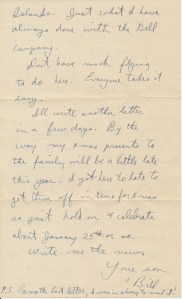 Islands. Just what I have
always done with the Bell
Company.
Don't have much flying
to do here. Everyone takes it
easy.
I'll write another letter
in a few days. By the
way my Xmas presents to
the family will be a little late
this year. I got here to late to
get them off in time for Xmas
so just hold on & celebrate
about January 25th or so.
Write me the news
Your son
Bill
P.S. the last letter, I was in a hurry to mail it!